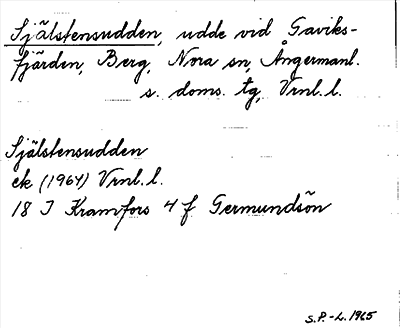 Själstensudden, udde vid Gaviks-
fjärden, Berg, Nora sn, Ångermanl.
s. doms. tg, Vrnl. l.
Själstensudden
ek (1964) Vrnl. l.
18 I Kramfors 4 f Germundsön
S.P.-L. 1965